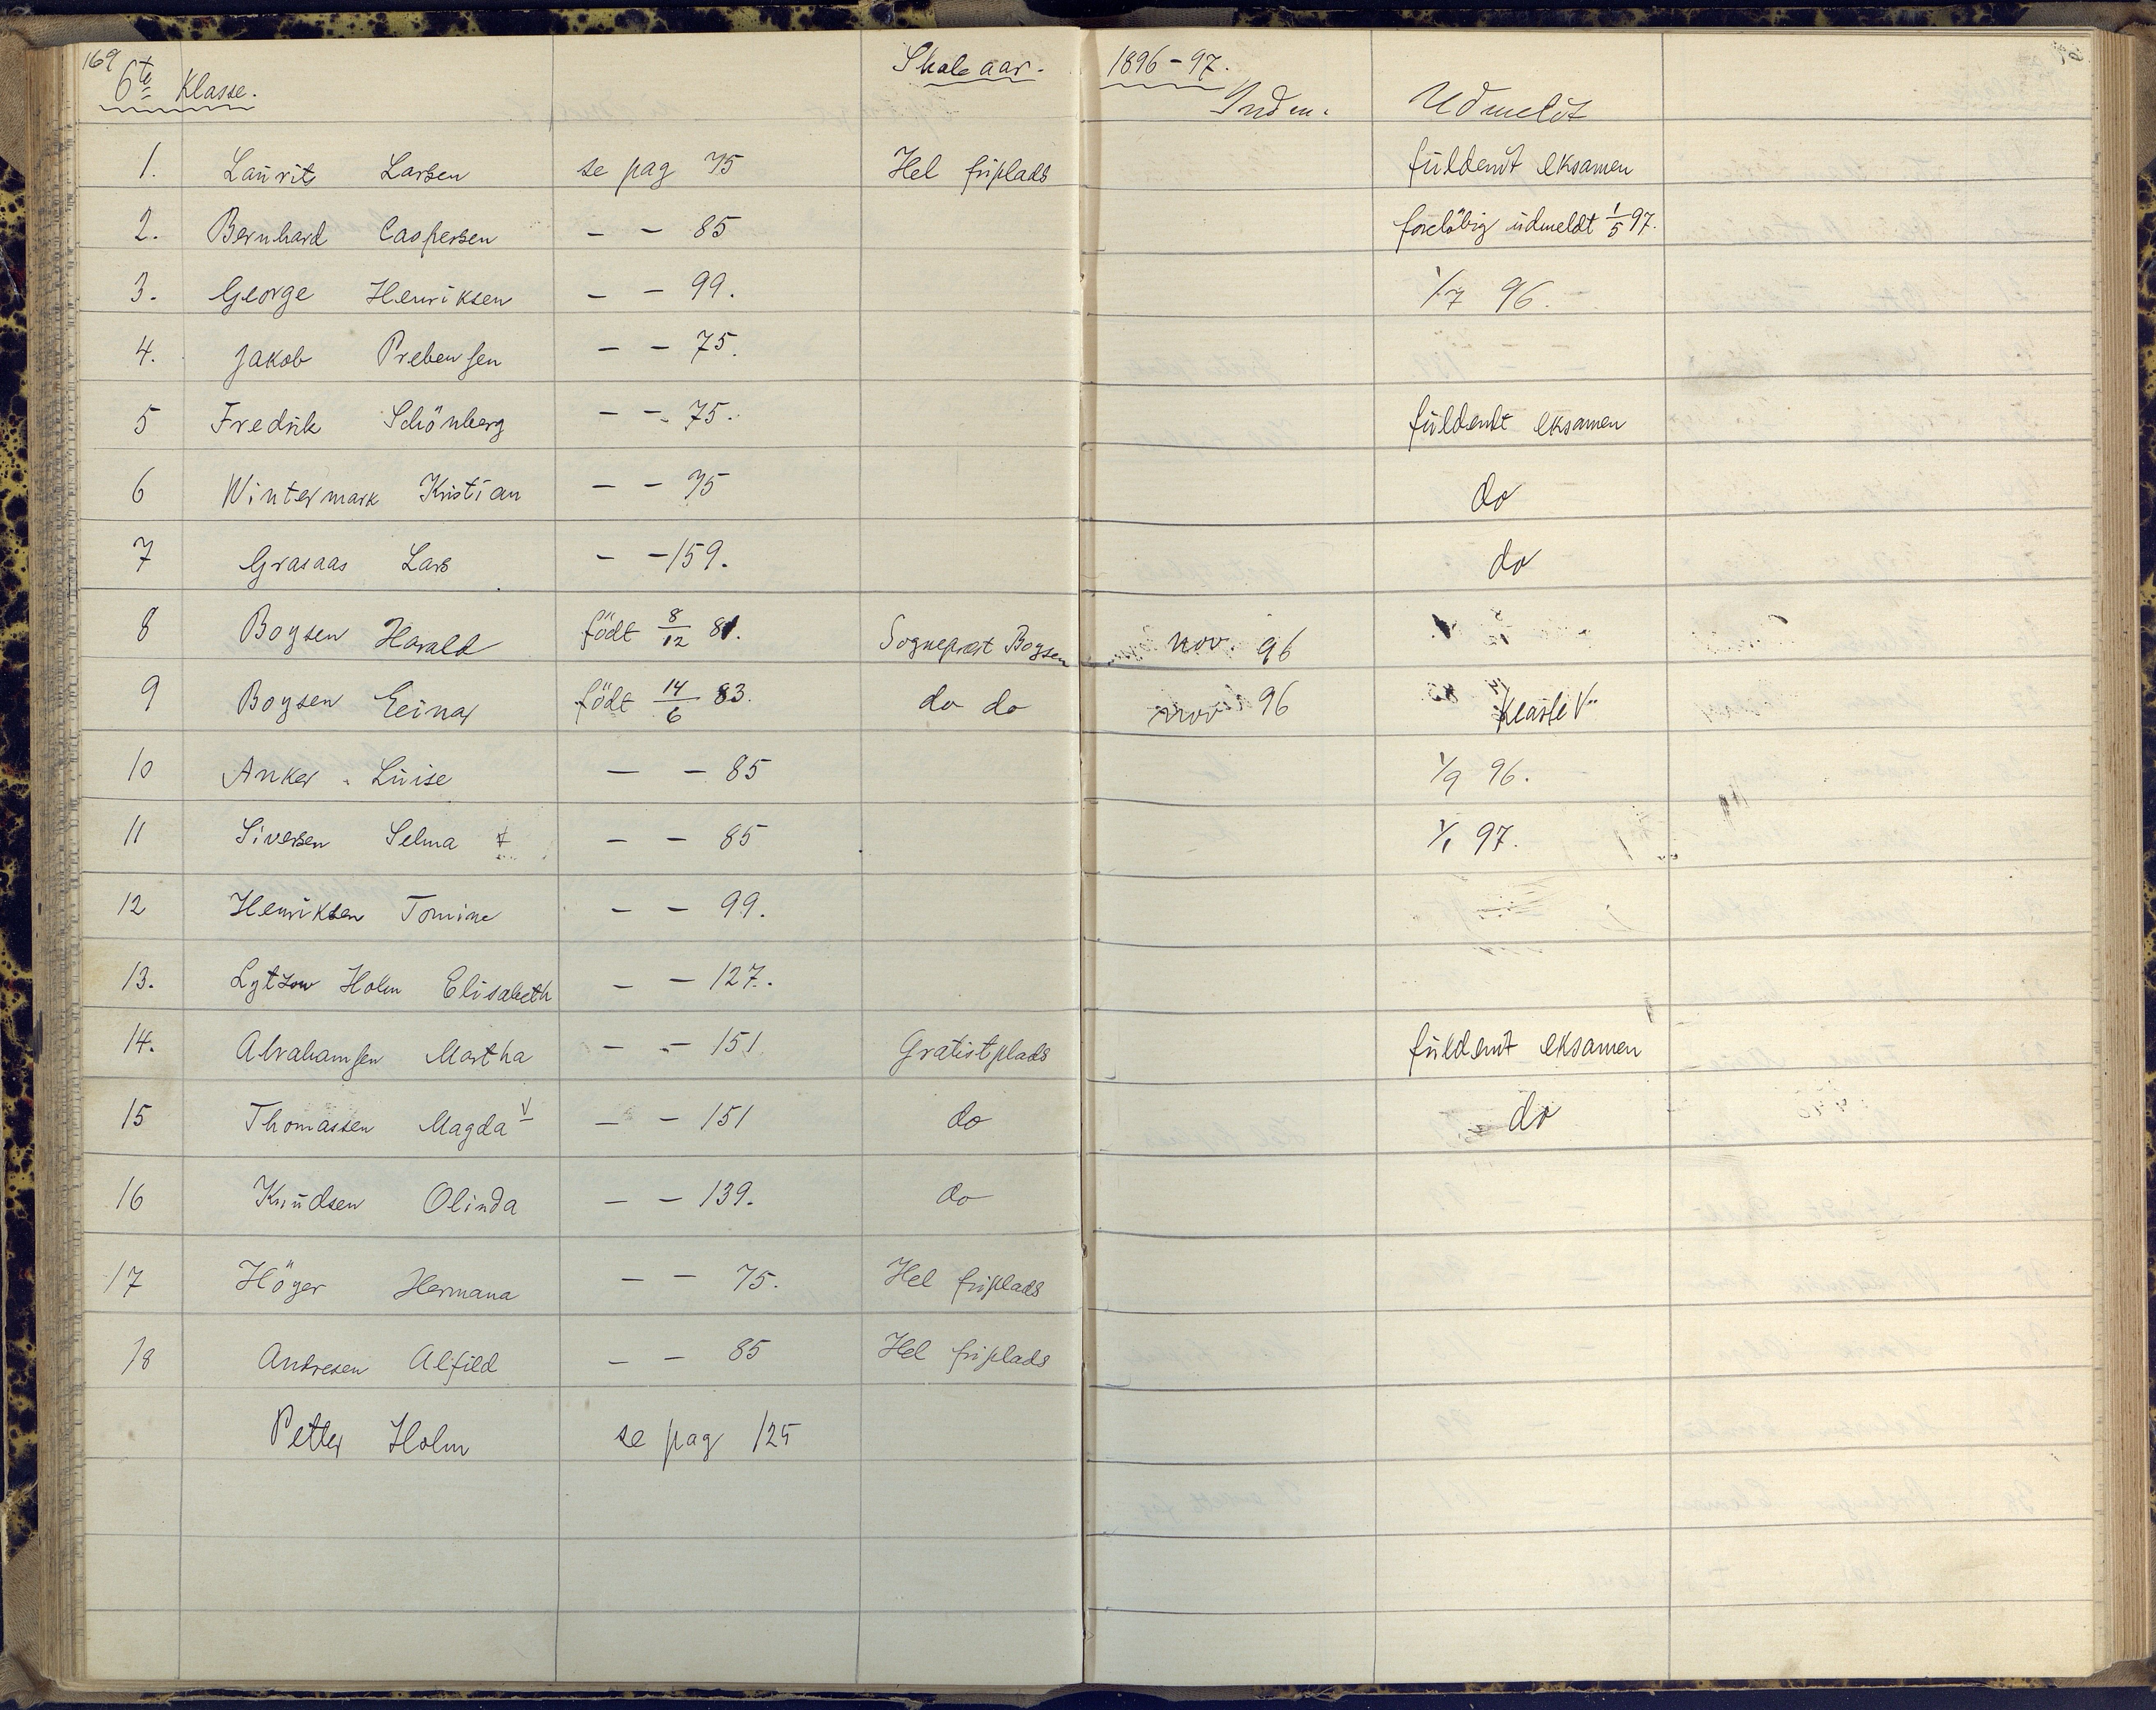 169
6te Klasse. Skoleaar. 1896-97.
Indm. Udmeldt
1. Laurits Larsen se pag 75 Hel friplads fuldendt eksamen
2. Bernhard Caspersen - - 85 foreløbig udmeldt 1/5 97.
3. George Henriksen - - 99. 1/7 96.
4. Jakob Prebensen - - 75.
5 Fredrik Schönberg - - 75. fuldendt eksamen
6 Wintermark Kristian - - 75 do
7 Grasaas Lars - - 159. do
8 Boysen Harald födt 8/12 81. Sogneprest Boysen nov. 96
9 Boysen Einar födt 14/6 83. do do nov 96 Klasse V
10 Anker Luise - - 85 1/9 96.
11 Siversen Selma - - 85 1/1 97.
12 Henriksen Tomine - - 99.
13. Lytzow Holm Elisabeth - - 127.
14. Abrahamsen Martha - - 151. Gratistplads fuldendt eksamen
15 Thomassen Magda V - - 151 do do
16 Knudsen Olinda - - 139. do
17 Höyer Hermana - - 75. Hel friplads
18 Andresen Alfild - - 85 Hel friplads
Petter Holm se pag 125